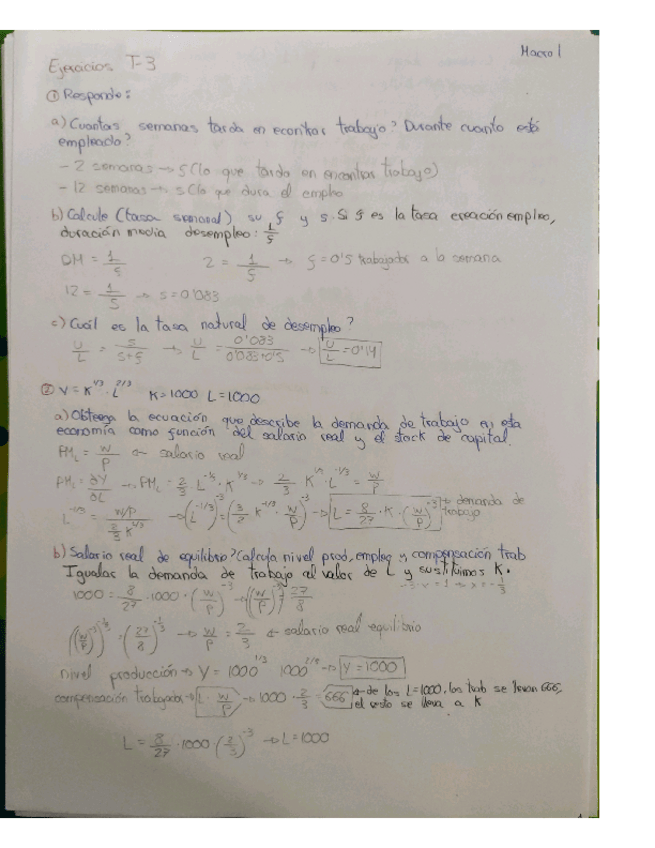 Macro 1
Ejercicios T-3
① Responde:
a) Cuantas semanas tarda en econtrar trabajo? Durante cuanto está
empleado?
- 2 semanas → f (lo que tarda en encontrar trabajo)
- 12 semanas → s (lo que dura el empleo
b) Calcule (tasa semanal) su f y s. Si f es la tasa creación empleo,
duración media desempleo: 1/f
DM = 1/f 2 = 1/f → f = 0'5 trabajador a la semana
12 = 1/s → s = 0'083
c) Cuál es la tasa natural de desempleo?
U/L = s/(s+f) → U/L = 0'083/(0'083+0'5) → U/L = 0'14
② Y = K^1/3 · L^2/3 K = 1000 L = 1000
a) Obtenga la ecuación que describe la demanda de trabajo en esta
economía como función del salario real y el stock de capital.
PM_L = W/P ← salario real
PM_L = ∂Y/∂L → PM_L = 2/3 · L^-1/3 · K^1/3 → 2/3 K^1/3 · L^-1/3 = W/P
L^-1/3 = (W/P)/(2/3 K^1/3) → (L^-1/3)^-3 = (3/2 K^-1/3 · W/P)^-3 → L = 8/27 · K · (W/P)^-3 → demanda de
trabajo
b) Salario real de equilibrio? Calcula nivel prod, empleo y compensación trab
Igualar la demanda de trabajo al valor de L y sustituimos K.
1000 = 8/27 · 1000 · (W/P)^-3 → (W/P)^-3 = 27/8
((W/P)^-3)^-1/3 = (27/8)^-1/3 → W/P = 2/3 ← salario real equilibrio
nivel producción → Y = 1000^1/3 · 1000^2/3 → Y = 1000
compensación trabajador → L · W/P → 1000 · 2/3 = 666 ← de los L=1000, los trab se llevan 666,
el resto se lleva a K
L = 8/27 · 1000 · (2/3)^-3 → L = 1000